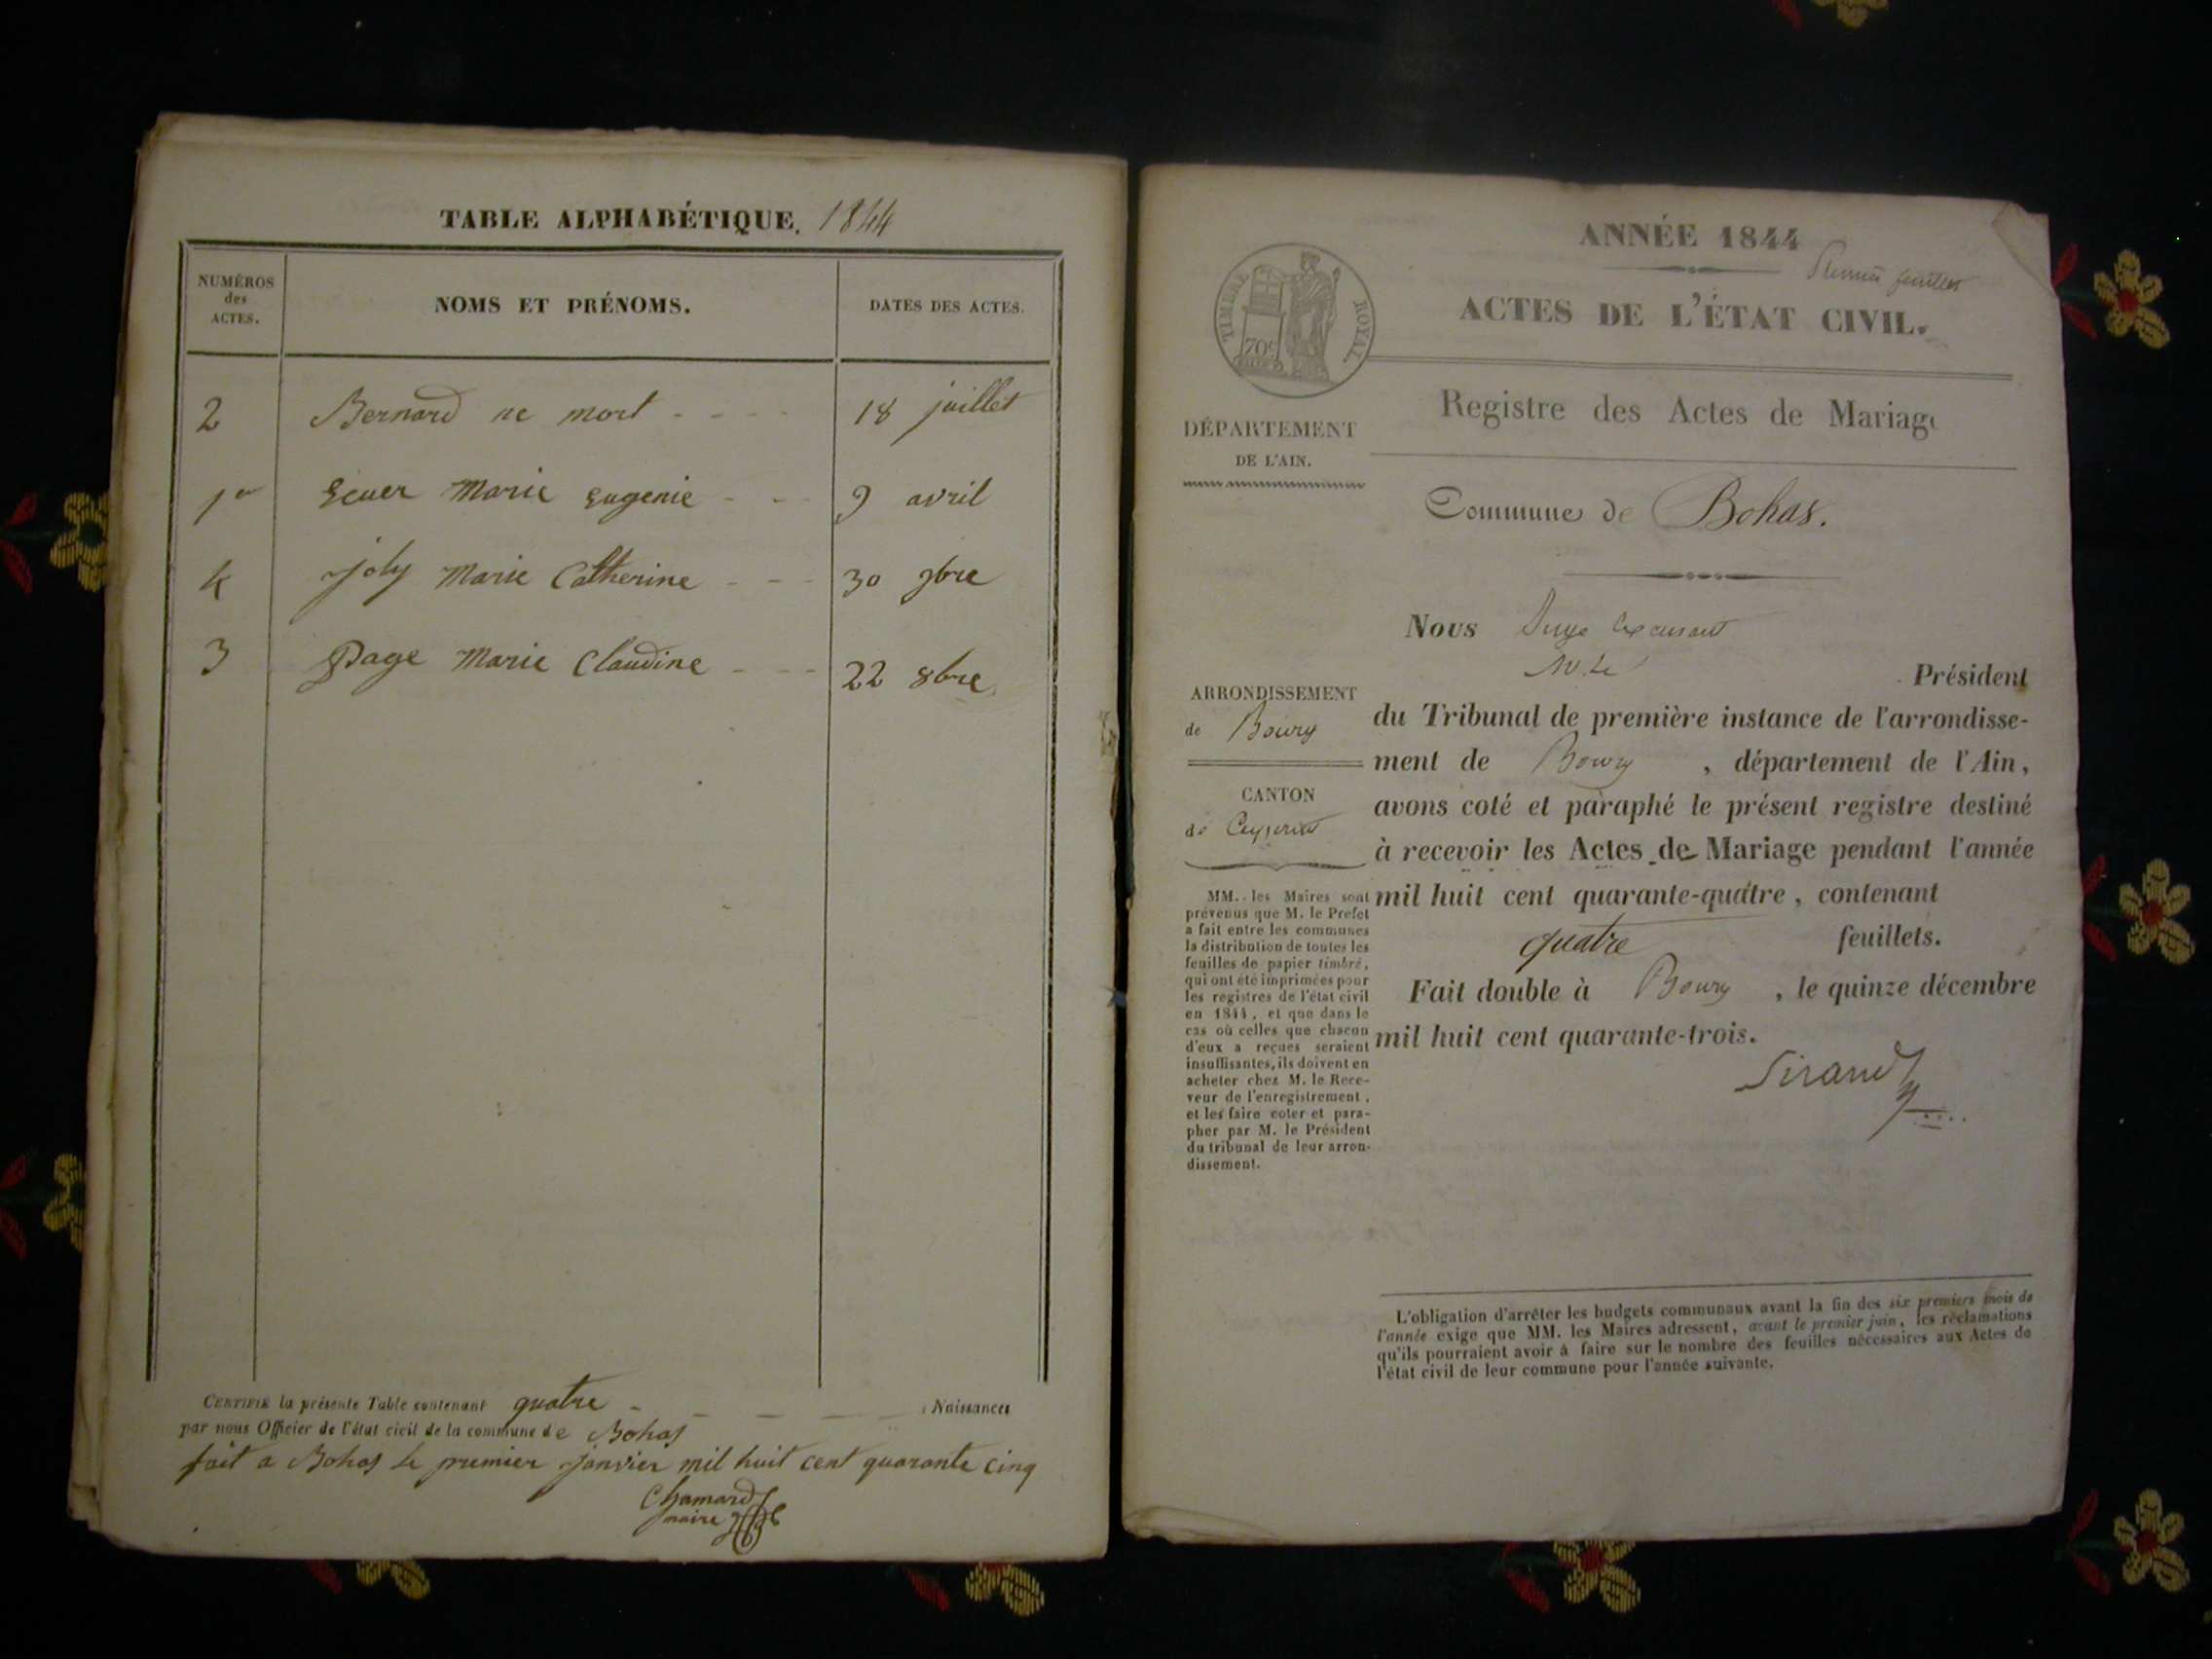 TABLE ALPHABÉTIQUE. 1844
NUMÉROS
des
ACTES.
NOMS ET PRÉNOMS.
DATES DES ACTES.
2 Bernard ne mort 18 juillet
1er Ecuer Marie Eugenie 9 avril
4 Joly Marie Catherine 30 9bre
3 Page Marie Claudine 22 8bre
CERTIFIÉ la présente Table contenant quatre Naissances
par nous Officier de l'état civil de la commune de Bohas
fait a Bohas le premier janvier mil huit cent quarante cinq
Chamard
maire
ANNÉE 1844
feuillet
ACTES DE L'ÉTAT CIVIL.
TIMBRE ROYAL.
70c
Registre des Actes de Mariage
DÉPARTEMENT
DE L'AIN.
Commune de Bohas.
Nous Juge
Président
du Tribunal de première instance de l'arrondisse-
ment de Bourg , département de l'Ain,
avons coté et paraphé le présent registre destiné
à recevoir les Actes de Mariage pendant l'année
mil huit cent quarante-quatre, contenant
quatre feuillets.
Fait double à Bourg , le quinze décembre
mil huit cent quarante-trois.
Sirand
ARRONDISSEMENT
de Bourg
CANTON
de Ceyzeriat
MM. les Maires sont
prévenus que M. le Prefet
a fait entre les communes
la distribution de toutes les
feuilles de papier timbré,
qui ont été imprimées pour
les registres de l'état civil
en 1844, et que dans le
cas où celles que chacun
d'eux a reçues seraient
insuffisantes, ils doivent en
acheter chez M. le Rece-
veur de l'enregistrement,
et les faire coter et para-
pher par M. le Président
du tribunal de leur arron-
dissement.
L'obligation d'arrêter les budgets communaux avant la fin des six premiers mois de
l'année exige que MM. les Maires adressent, avant le premier juin, les réclamations
qu'ils pourraient avoir à faire sur le nombre des feuilles nécessaires aux Actes de
l'état civil de leur commune pour l'année suivante.